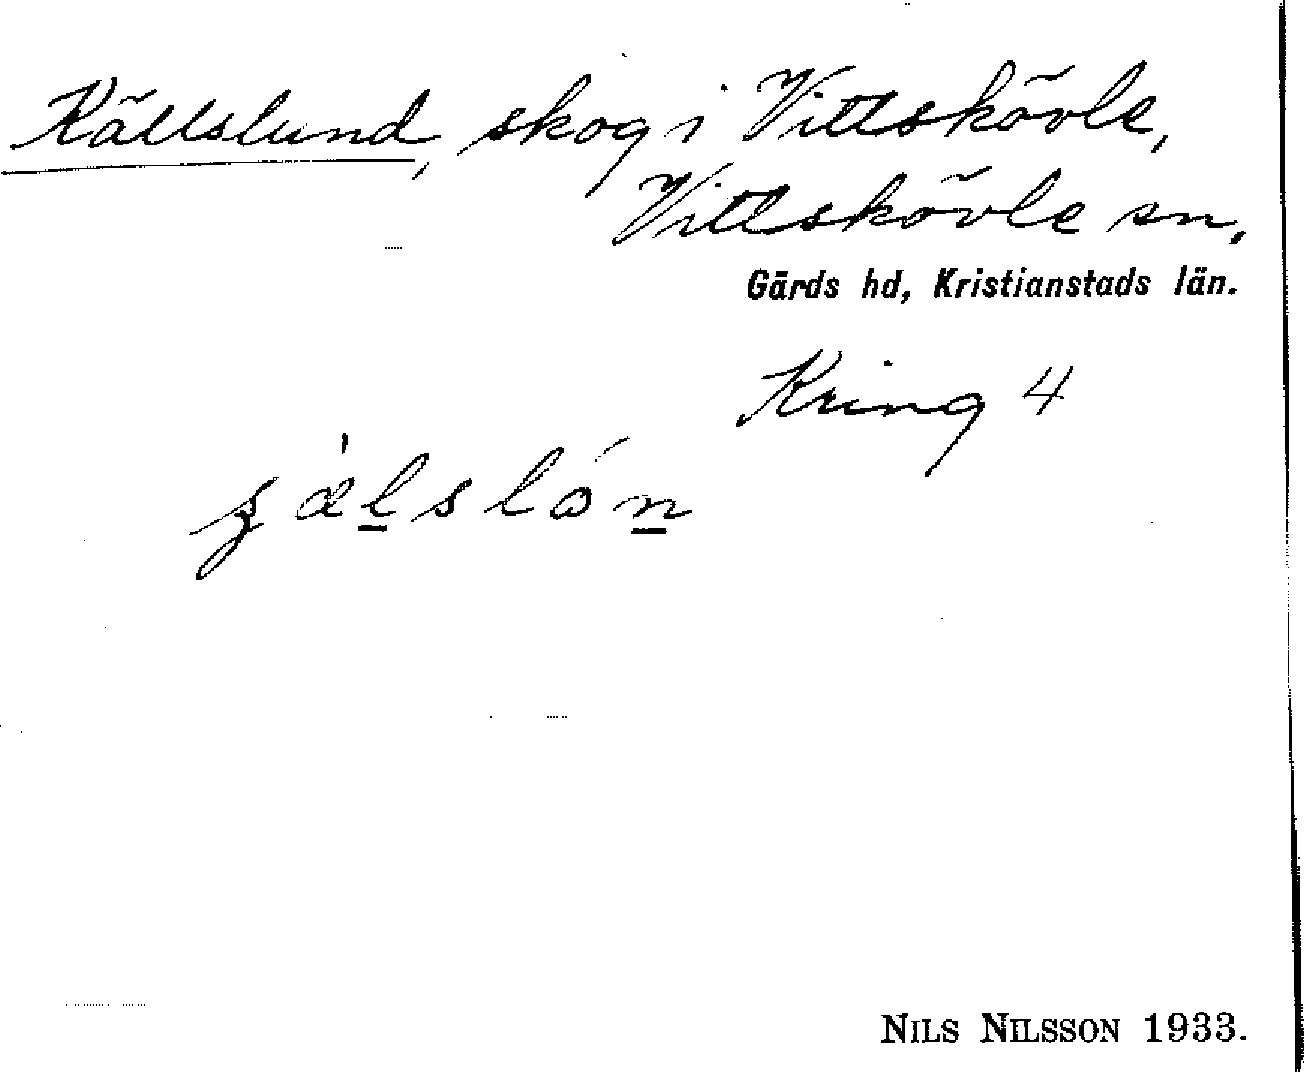 Källslund, skog i Vittskövle,
Vittskövle sn,
Gärds hd, Kristianstads län.
Kring 4
NILS NILSSON 1933.